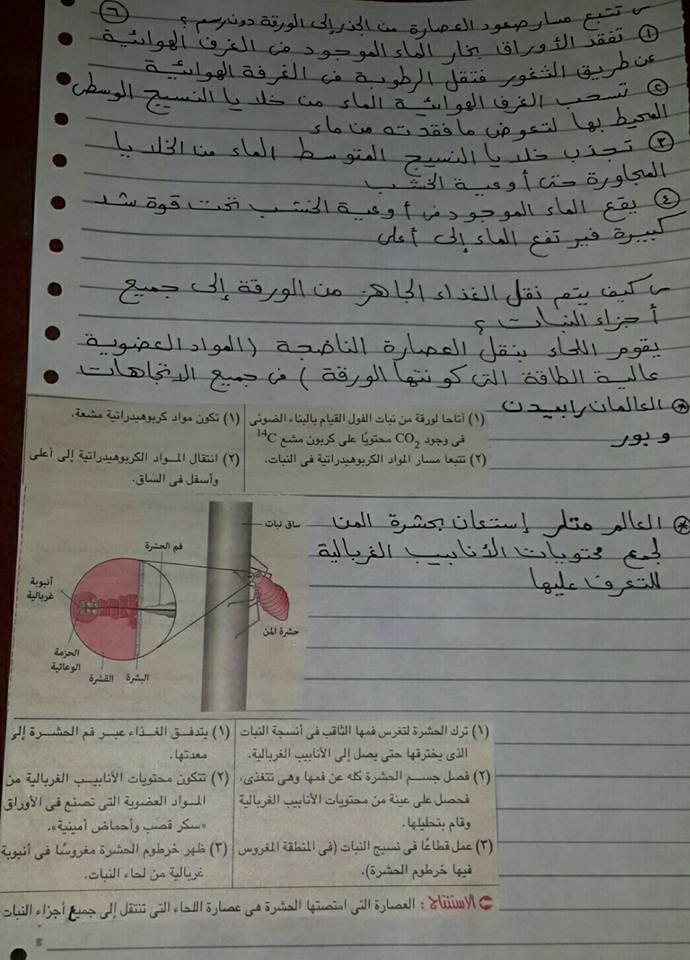 س تتبع مسار صعود العصارة من الجذر إلى الورقة دون رسم ؟
٦
① تفقد الأوراق بخار الماء الموجود فى الغرف الهوائية
عن طريق الثغور فتقل الرطوبة فى الغرفة الهوائية
② تسحب الغرف الهوائية الماء من خلايا النسيج الوسطى
المحيط بها لتعوض ما فقدته من ماء
③ تجذب خلايا النسيج المتوسط الماء من الخلايا
المجاورة حتى أوعية الخشب
④ يقع الماء الموجود فى أوعية الخشب تحت قوة شد
كبيرة فيرتفع الماء إلى أعلى
س كيف يتم نقل الغذاء الجاهز من الورقة إلى جميع
أجزاء النبات ؟
يقوم اللحاء بنقل العصارة الناضجة (المواد العضوية
عالية الطاقة التى كونتها الورقة) فى جميع الاتجاهات
* العالمان رابيدن
وبور
(١) أتاحا لورقة من نبات الفول القيام بالبناء الضوئى
فى وجود CO₂ محتويًا على كربون مشع ¹⁴C
(٢) تتبعا مسار المواد الكربوهيدراتية فى النبات.
(١) تكون مواد كربوهيدراتية مشعة.
(٢) انتقال المـواد الكربوهيدراتية إلى أعلى
وأسفل فى الساق.
* العالم متلر إستعان بحشرة المن
لجمع محتويات الأنابيب الغربالية
للتعرف عليها
ساق نبات
فم الحشرة
أنبوبة
غربالية
حشرة المن
الحزمة
الوعائية
القشرة
البشرة
(١) ترك الحشرة لتغرس فمها الثاقب فى أنسجة النبات
الذى يخترقها حتى يصل إلى الأنابيب الغربالية.
(٢) فصل جسـم الحشرة كله عن فمها وهى تتغذى،
فحصل على عينة من محتويات الأنابيب الغربالية
وقام بتحليلها.
(٣) عمل قطاعًا فى نسيج النبات (فى المنطقة المغروس
فيها خرطوم الحشرة).
(١) يتدفـق الغـذاء عبـر فم الحشرة إلى
معدتها.
(٢) تتكون محتويات الأنابيـب الغربالية من
المـواد العضوية التى تصنع فى الأوراق
«سكر قصب وأحماض أمينية».
(٣) ظهر خرطوم الحشرة مغروسًا فى أنبوبة
غربالية من لحاء النبات.
الاستنتاج : العصارة التى امتصتها الحشرة هى عصارة اللحاء التى تنتقل إلى جميع أجزاء النبات